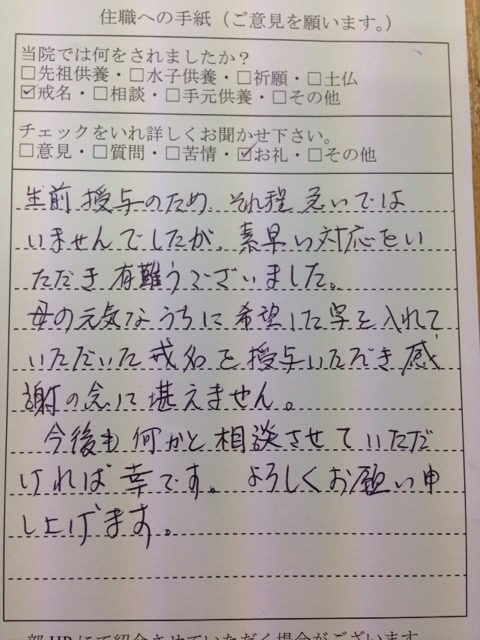 住職への手紙（ご意見を願います。）
当院では何をされましたか？
□先祖供養・□水子供養・□祈願・□土仏
☑戒名・□相談・□手元供養・□その他
チェックをいれ詳しくお聞かせ下さい。
□意見・□質問・□苦情・☑お礼・□その他
生前授与のため、それ程急いでは
いませんでしたが、素早い対応をい
ただき有難うございました。
母の元気なうちに希望した字を入れて
いただいた戒名を授与いただき感
謝の念に堪えません。
今後も何かと相談させていただ
ければ幸です。よろしくお願い申
し上げます。
部HPにて紹介させていただく場合がございます